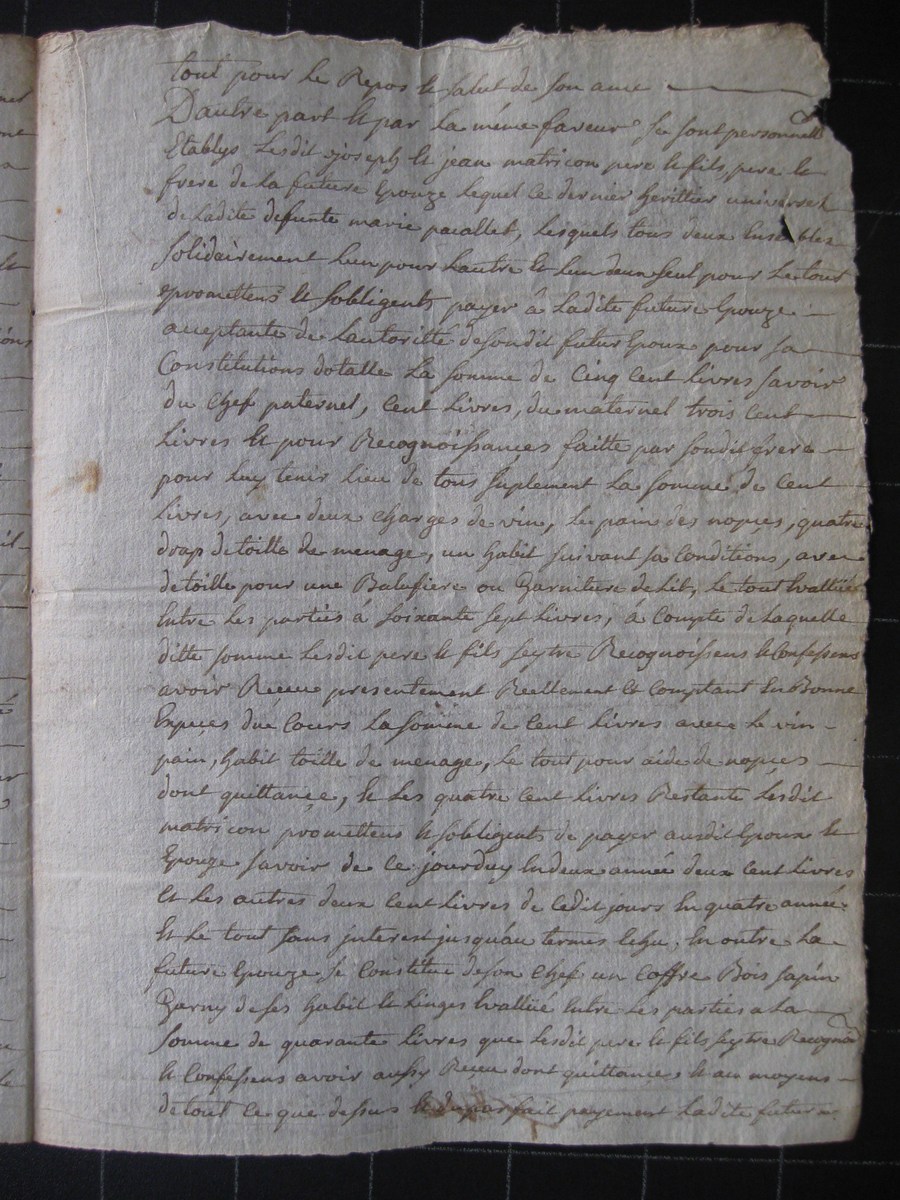 tout pour le Repos et salut de son ame
Dautre part et par la même faveur se sont personnell
Etablys Lesdit joseph et jean matricon pere et fils, pere et
frere de la future Epouze lequel ce dernier herittier universel
de ladite defunte marie paallet, lesquels tous deux Ensembles
Solidairement lun pour lautre et lun deux seul pour le tout
promettens et sobligents payer à Ladite future Epouze
acceptante de Lautoritté desondit futur Epoux pour sa
Constitutions dotalle La somme de Cinq Cent livres savoir
du chef paternel, Cent Livres, du maternel trois Cent
Livres et pour Recognoissances faitte par sondit frere
pour luy tenir lieu de tous suplement La somme de Cent
livres, avec deux charges de vin, le pain des nopçes, quatre
drap de toille de menage, un habit suivant sa Conditions, avec
de toille pour une ou Garniture de Lit, le tout Evallüé
Entre les parties à soixante sept livres, à Compte de Laquelle
ditte somme Lesdit pere et fils seytre Recognoissens et Confessens
avoir Receu presentement Reellement et Comptant En Bonne
Espeçes du Cours La somme de Cent livres avec le vin
pain, habit toille de menage, le tout pour aide de nopçes
dont quittançe, et les quatre Cent livres Restante Lesdit
matricon promettens et sobligents de payer ausdit Epoux et
Epouze savoir de ce jourduy En deux année deux Cent livres
et les autres deux Cent livres de Cedit jours En quatre année
Et le tout sans interest jusqu'au termes Echu, En outre La
future Epouze se Constitue de son Chef un Coffre Bois sapin
Garny de ses habit et Linges Evallüé Entre Les parties a La
somme de quarante livres que Lesdit pere et fils seytre Recogno
et Confessens avoir aussy Receu dont quittançe et au moyens
de tout Ce que dessus et du parfait payement Ladite future